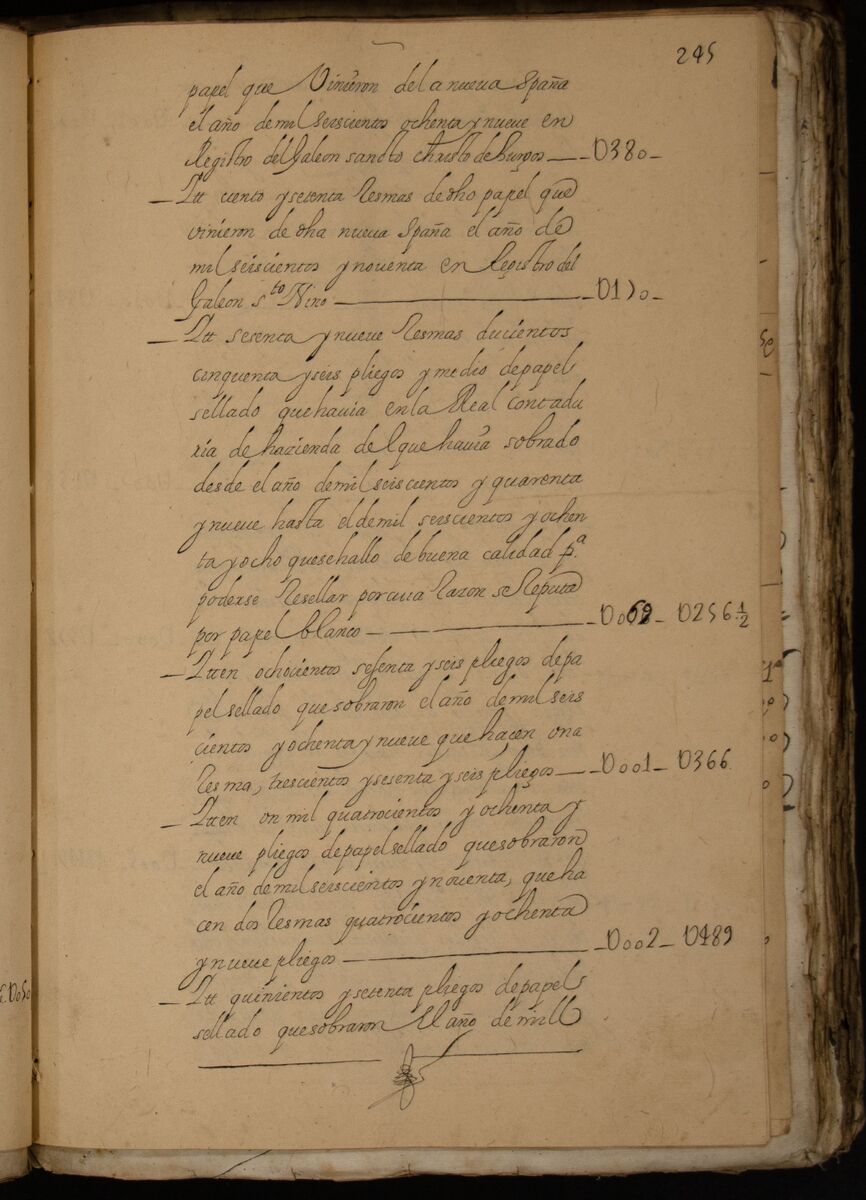 245
papel que Vinieron de la nueva España
el año de mil seiscientos ochenta y nueve en
Registro del Galeon sancto christo de burgos — U380 —
— Itt ciento y setenta Resmas de dho papel que
vinieron de dha nueva España el año de
mil seiscientos y noventa en Registro del
Galeon s.to Nino — U170 —
— Itt sesenta y nueve Resmas ducientos
cinquenta y seis pliegos y medio de papel
sellado que havia en la Real Contadu
ria de hazienda del que havia sobrado
desde el año de mil seiscientos y quarenta
y nueve hasta el de mil seiscientos y ochen
ta y ocho que se hallo de buena calidad p.a
poderse Resellar por cuia Razon se Reputa
por papel blanco — U069 — U256 1/2
— Itten ochocientos sesenta y seis pliegos de pa
pel sellado que sobraron el año de mil seis
cientos y ochenta y nueve que haçen una
Resma, trescientos y sesenta y seis pliegos — U001 — U366
— Itten un mil quatrocientos y ochenta y
nueve pliegos de papel sellado que sobraron
el año de mil seiscientos y noventa, que ha
cen dos Resmas quatrocientos y ochenta
y nueve pliegos — U002 — U489
— Itt quinientos y setenta pliegos de papel
sellado que sobraron El año de mill